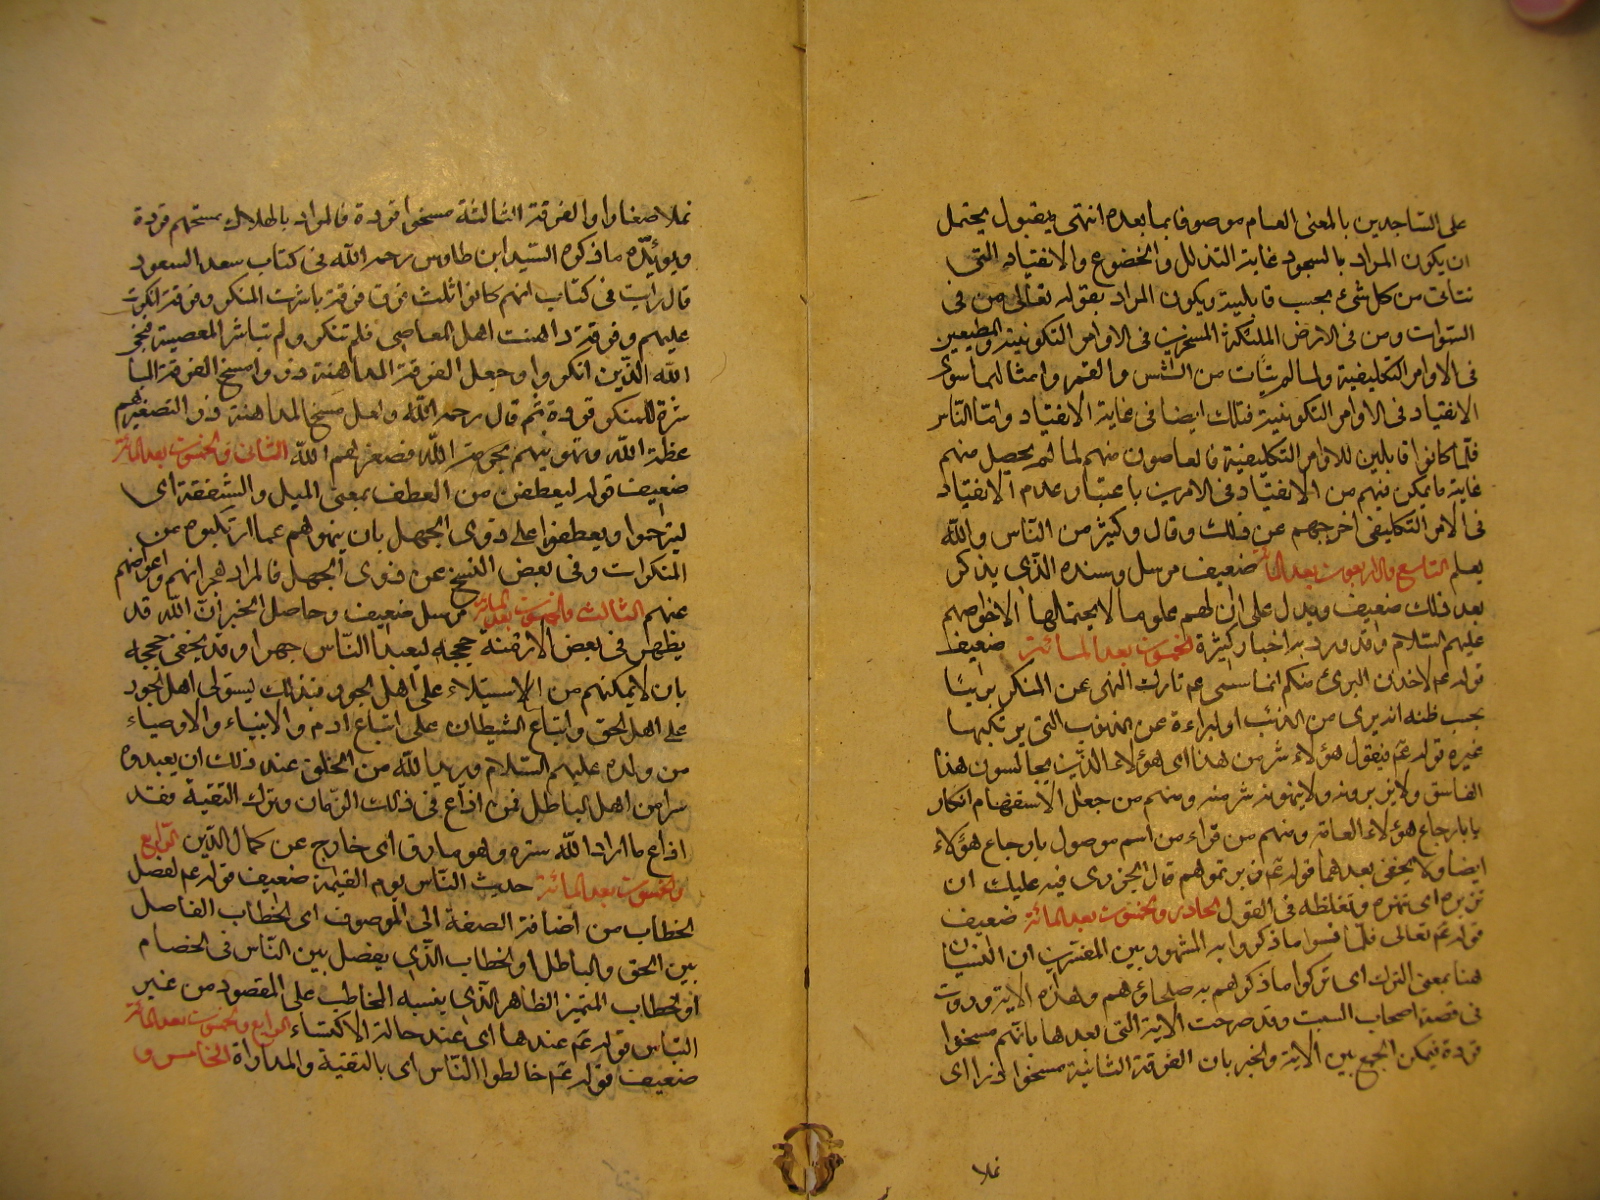 على الساجدين بالمعنى العام موصوفا بما بعده انتهى ويقول يحتمل
ان يكون المراد بالسجود غاية التذلل والخضوع والانقياد التى
نتاتى من كل شئ بحسب قابلية ويكون المراد بقوله تعالى من فى
السموات ومن فى الارض الملئكة المسخرين فى الاوامر التكوينية والمطيعين
فى الاوامر التكليفية ولما لم يتأت من الشمس والقمر وامثالهما سوى
الانقياد فى الاوامر التكوينية فتلك ايضا فى غاية الانقياد واما الناس
فلما كانوا قابلين للاوامر التكليفية فالعاصون منهم لما لم يحصل منهم
غاية ما يمكن منهم من الانقياد فى الامرين باعتبار عدم الانقياد
فى الامر التكليفى اخرجهم عن ذلك وقال وكثير من الناس والله
يعلم التاسع والاربعون بعد المائة ضعيف مرسل وسنده الذى يذكر
بعد ذلك ضعيف ويدل على ان لهم علوما لا يحتملها الا خواصهم
عليهم السلام وقد ورد به اخبار كثيرة الخمسون بعد المائة ضعيف
قوله عم لاخذن البرئ منكم انما سمى عم تارك النهى عن المنكر بريئا
بحسب ظنه انه برى من الذنب او لبراءة عن الذنوب التى يرتكبها
غيره قوله عم فيقول هؤلاء شر من هذا اى هؤلاء الذين يجالسون هذا
الفاسق ولا يزبرونه ولا ينهونه شر منه ومنهم من جعل الاستفهام انكار
يا بارجاع هؤلاء العامة ومنهم من قراء من اسم موصول بارجاع هؤلاء
ايضا ولا يخفى بعدهما قوله عم فزبرتموهم قال الجزرى فيه عليك ان
تزبره اى تنهره وتغلظه فى القول الحادى والخمسون بعد المائة ضعيف
قوله عم تعالى فلما نسوا ما ذكروا به المشهور بين المفسرين ان النسيان
هنا بمعنى الترك اى تركوا ما ذكرهم به صلحاؤهم وهذه الاية وردت
فى قصة اصحاب السبت وقد صرحت الاية التى بعدها بانهم مسخوا
قردة فيمكن الجمع بين الاية والخبر بان الفرقة الثانية مسخوا ذرا اى
نملا
نملا صغارا والفرقة الثالثة مسخوا قردة فالمراد بالهلاك مسخهم قردة
ويؤيده ما ذكره السيد ابن طاوس رحمه الله فى كتاب سعد السعود
قال رايت فى كتاب انهم كانوا ثلث فرق فرقة باشرت المنكر وفرقة انكرت
عليهم وفرقة داهنت اهل المعاصى فلم تنكر ولم تباشر المعصية فنجى
الله الذين انكروا وجعل الفرقة المداهنة ذرا ومسخ الفرقة المبا
شرة للمنكر قردة ثم قال رحمه الله ولعل مسخ المداهنة ذرا لتصغيرهم
عظمة الله وتهوينهم بحرمة الله فصغرهم الله الثانى والخمسون بعد المائة
ضعيف قوله ليعطفن من العطف بمعنى الميل والشفقة اى
ليتراحموا ويعطفوا على ذوى الجهل بان ينهوهم عما ارتكبوه من
المنكرات وفى بعض النسخ عن ذوى الجهل فالمراد هجرانهم واعراضهم
عنهم الثالث والخمسون بعد المائة مرسل ضعيف وحاصل الخبر ان الله قد
يظهر فى بعض الازمنة حججه ليعبدا الناس جهرا وقد يخفى حججه
بان لا يمكنهم من الاستيلاء على اهل الجور فبذلك يستولى اهل الجور
على اهل الحق واتباع الشيطان على اتباع ادم والانبياء والاوصياء
من ولده عليهم السلام ويريد الله من الخلق عند ذلك ان يعبدوه
سرا من اهل الباطل فمن اذاع فى ذلك الزمان وترك التقية فقد
اذاع ما اراد الله ستره وهو مارق اى خارج عن كمال الدين الرابع
والخمسون بعد المائة حديث الناس يوم القيمة ضعيف قوله عم لفصل
الخطاب من اضافة الصفة الى الموصوف اى الخطاب الفاصل
بين الحق والباطل او الخطاب الذى يفصل بين الناس فى الخصام
او الخطاب المتميز الظاهر الذى يفسبه المخاطب على المقصود من غير
التباس قوله عم عندها اى عند حالة الاكتساء الرابع والخمسون بعد المائة
ضعيف قوله عم خالطوا الناس اى بالتقية والمداراة الخامس و